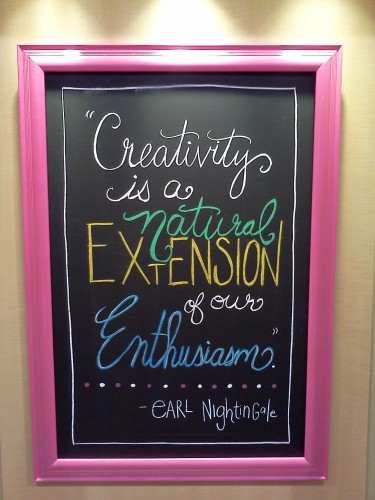 "Creativity
is a
natural
EXTENSION
of our
Enthusiasm."
- EARL NightinGale